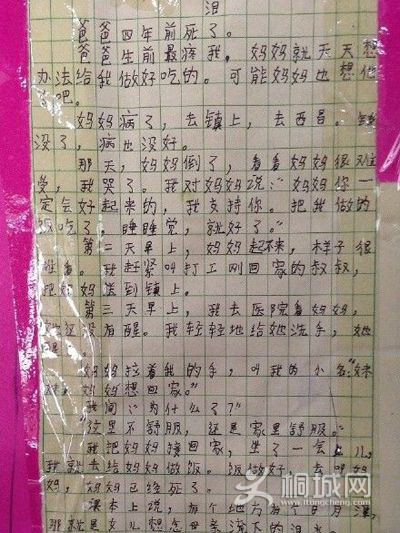 泪
爸爸四年前死了。
爸爸生前最疼我，妈妈就天天想
办法给我做好吃的。可能妈妈也想他
了吧。
妈妈病了，去镇上，去西昌。钱
没了，病也没好。
那天，妈妈倒了，看看妈妈很难
受，我哭了。我对妈妈说：“妈妈你一
定会好起来的，我支持你。把我做的
饭吃了，睡睡觉，就好了。”
第二天早上，妈妈起不来，样子很
难看。我赶紧叫打工刚回家的叔叔，
把妈妈送到镇上。
第三天早上，我去医院看妈妈，
她还没有醒。我轻轻地给她洗手，她
醒了。
妈妈拉着我的手，叫我的小名：“妹
妹，妈妈想回家。”
我问：“为什么了？”
“这里不舒服，还是家里舒服。”
我把妈妈接回家，坐了一会儿，
我就去给妈妈做饭。饭做好，去叫妈
妈，妈妈已经死了。
课本上说，有个地方有 日月潭，
那就是女儿想念母亲流下的泪水。
桐城网
www.itongcheng.com